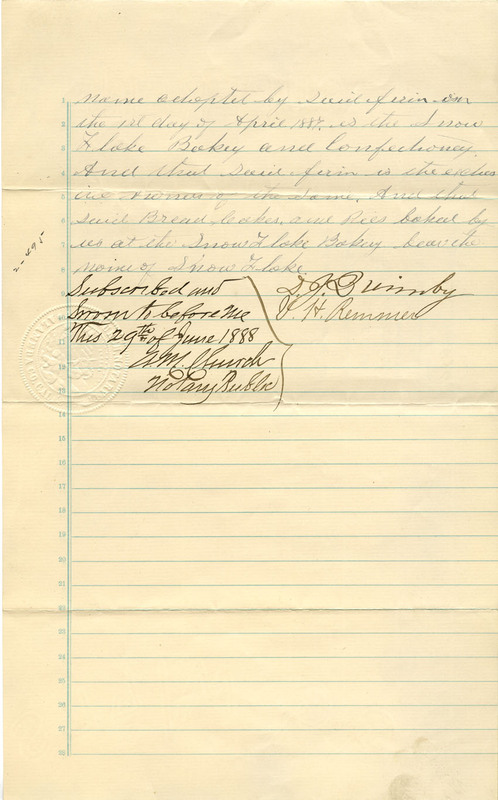 name adopted by said firm on
the 1st day of April 1887. is the Snow
Flake Bakey and Confectioney.
And that said firm is the exclus
ive owners of the same. And that
said Bread, Cakes, and Pies baked by
us at the Snow Flake Bakey bear the
name of Snow Flake.
Subscribed and
Sworn to before me
This 29th of June 1888
Church
Notary Public
Quimby
H. Remmer